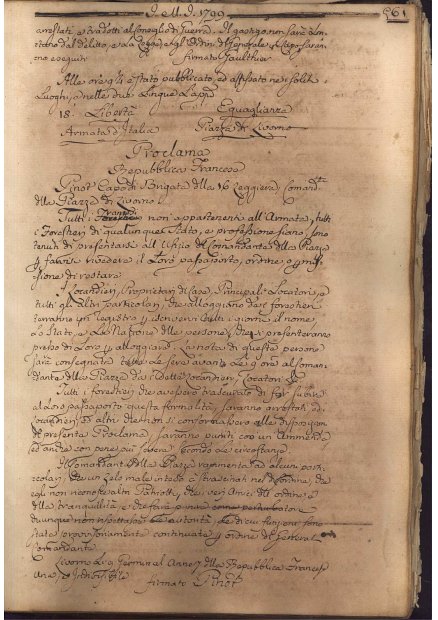 J. M. J. 1799
561
arrestati e tradotti al Consiglio di Guerra. Il gastigo non sarà
delitto, e la Legge, e gl'Ordini del Generale in Capo saran-
no eseguiti firmato Gaulthier
Alle ore è stato pubblicato, ed affissato ne' soliti
Luoghi, nelle due Lingue
18. Libertà Eguaglianza
Armata d'Italia Piazza di Livorno
Proclama
Repubblica Francese
Pinot Capo di Brigata della 16 Leggiera, Comandte
della Piazza di Livorno
Tutti i Francesi non appartenenti all'Armata, tutti
i Forestieri di qualunque Stato, e professione siano, sono
tenuti di presentarsi all'Ufizio del Comandante della Piazza
e farsi vedere il loro passaporto, ordine o permis-
sione di restare
I Locandieri, Proprietari di Case, Principali Locatori, e
tutti gli altri particolari, che alloggiano dei forestieri
terranno un registro, e scriveranno tutti i giorni il nome,
lo Stato, e la Nazione delle persone, che si presenteranno
presso di Loro per alloggiare. La nota di queste persone
sarà consegnata tutte le sere avanti le ore al Coman-
dante della Piazza dai detti Locandieri, Locatori &c.
Tutti i forestieri che avessero trascurato di far subire
al Loro passaporto questa formalità, saranno arrestati, i
Locandieri, ed altri che non si conformassero alle disposizioni
del presente Proclama, saranno puniti con un Ammenda,
ed anche con pene più severe secondo le circostanze.
Il Comandante della Piazza rammenta ad alcuni parti-
colari, che un zelo male inteso
egli non riconosce altri Patriotti, che i veri Amici dell'ordine e
della tranquillità, e che farà punire come perturbatore
chiunque non rispettasse le autorità, le di cui funzioni sono
state provvisoriamente continuate per ordine del General
Comandante.
Livorno Li Germinal Anno 7 della Repubblica Francese
Una, ed Indivisibile
firmato Pinot